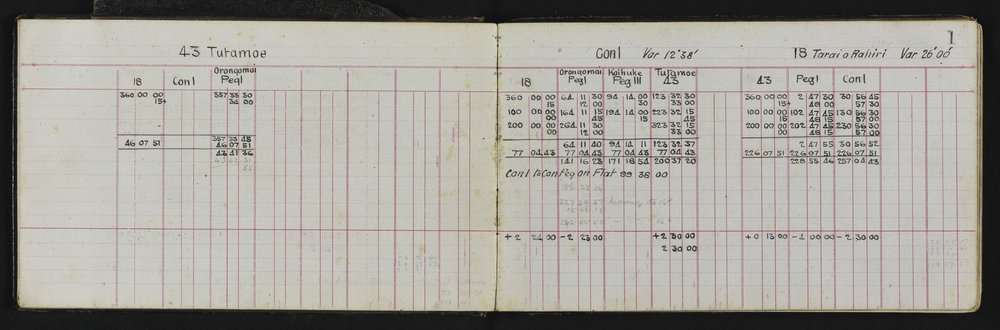 1
43 Tutamoe
18 Con1 Orongomai Peg1
360 00 00 357 33 30
15+ 34 00
357 33 45
46 07 51 46 07 51
43 41 36
Con1 Var 12°38'
18 Orongomai Peg1 Kaihuke Peg III Tutamoe 43
360 00 00 64 11 30 94 14 00 123 32 30
15 12 00 30 33 00
100 00 00 164 11 15 194 14 00 223 32 15
00 45 15 45
200 00 00 264 11 30 323 32 15
00 12 00 33 00
64 11 40 94 14 11 123 32 37
77 04 43 77 04 43 77 04 43 77 04 43
141 16 23 171 18 54 200 37 20
Con1 to Con Peg on Flat 99 38 00
+2 24 00 -2 23 00 +2 30 00
2 30 00
18 Tarai o Rahiri Var 26°00
43 Peg1 Con1
360 00 00 2 47 30 30 56 45
15+ 48 00 57 30
100 00 00 102 47 45 130 56 30
15 48 15 57 00
200 00 00 202 47 45 230 56 30
00 48 15 57 00
2 47 55 30 56 52
226 07 51 226 07 51 226 07 51
228 55 46 257 04 43
+0 13 00 -1 00 00 -2 30 00